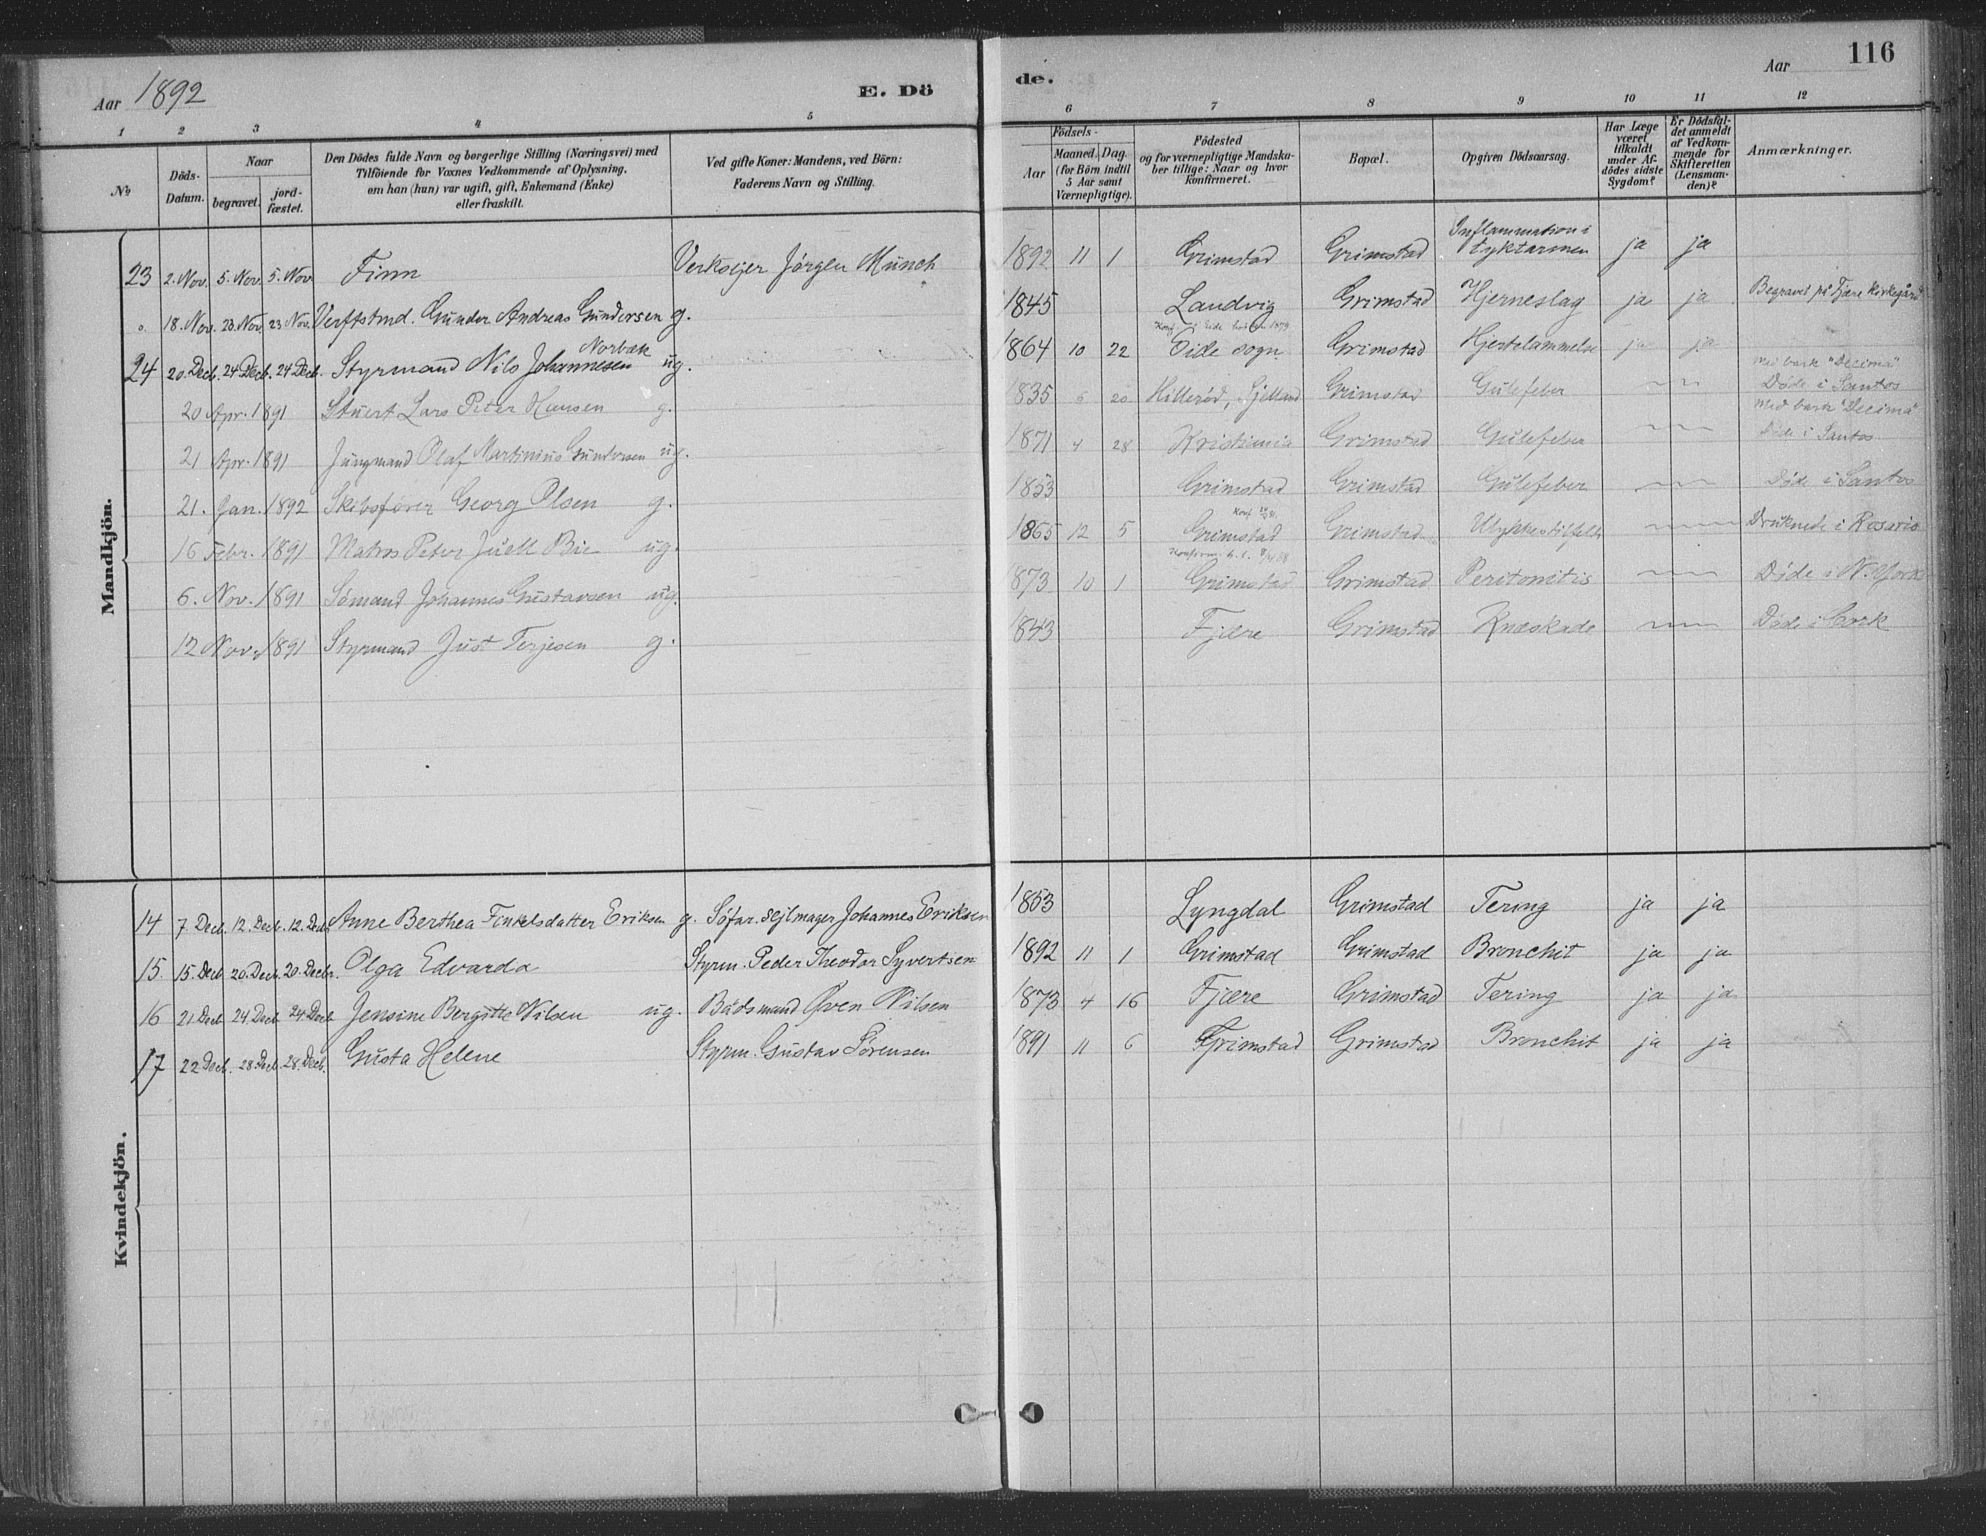 Aar 1892
E. Dö
de.
Aar
116
1 2 3 4 5
6 7 8 9 10 11 12
No
Döds-Datum.
Naar
begravet.
jord-fæstet.
Den Dödes fulde Navn og borgerlige Stilling (Næringsvei) med
Tilföiende for Voxnes Vedkommende af Oplysning,
om han (hun) var ugift, gift, Enkemand (Enke)
eller fraskilt.
Ved gifte Koner: Mandens, ved Börn:
Faderens Navn og Stilling.
Födsels-
Aar
Maaned. Dag.
(for Börn indtil
5 Aar samt
Værnepligtige).
Födested
og for værnepligtige Mandska-
ber tillige: Naar og hvor
konfirmeret.
Bopæl.
Opgiven Dödsaarsag.
Har Læge
været
tilkaldt
under Af-
dödes sidste
Sygdom?
Er Dödsfal-
det anmeldt
af Vedkom-
mende for
Skifteretten
(Lensman-
den)?
Anmærkninger.
Mandkjön.
23 2. Nov. 5. Nov. 5. Nov Finn Verksejer Jørgen Munch 1892 11 1 Grimstad Grimstad Inflammation i tyktarmen ja ja
0. 18. Nov. 23. Nov. 23 Nov. Verftstmd. Gunder Andreas Gundersen g. 1845 Landvig Grimstad Hjerneslag ja ja Begravet på Fjære Kirkegård
24 20. Decb. 24 Decb. 24 Decb. Styrmand Nils Johannesen Norbæk ug. 1864 10 22 Eide sogn Grimstad Hjertelammelse ja ja
20 Apr. 1891 Stuert Lars Peter Hansen g. 1835 6 20 Hillerød, Sjelland Grimstad Gulefeber Med bark "Decima" Døde i Santos
21 Apr. 1891 Jungmand Olaf Martinius Gundersen ug. 1871 4 28 Kristiania Grimstad Gulefeber Med bark "Decima" Døde i Santos
21. Jan. 1892 Skibsfører Georg Olsen g. 1853 Grimstad Grimstad Gulefeber Døde i Santos
16 Febr. 1891 Matros Peter Juell Bie ug. 1865 12 5 Grimstad Grimstad Ulykkestilfelde Druknede i Rosario
6. Nov. 1891 Sømand Johannes Gustavsen ug. 1873 10 1 Grimstad Grimstad Peritonitis Døde i N. York
12 Nov. 1891 Styrmand Just Terjesen g. 1843 Fjære Grimstad Knæskade Døde i Cork
Kvindekjön.
14 7 Decb. 12. Decb. 12. Decb. Anne Berthea Finkelsdatter Eriksen g. Søfar. Sejlmager Johannes Eriksen 1853 Lyngdal Grimstad Tering ja ja
15. 15. Decb 20. Decb. 20. Decbr. Olga Edvarda Styrm. Peder Theodor Syvertsen 1892 11 1 Grimstad Grimstad Bronchit ja ja
16 21 Decb 24 Decb 24 Decb Jensine Bergitte Nilsen ug. Bådsmand Øven Nilsen 1873 4 16 Fjære Grimstad Tering ja ja
17 22 Decb. 28 Decb 28. Decb. Gusta Helene Styrm. Gustav Sørensen 1891 11 6 Grimstad Grimstad Bronchit ja ja